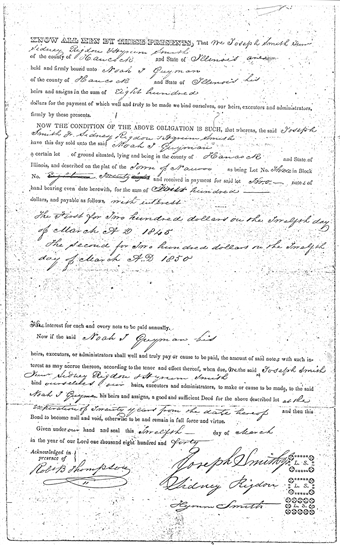 KNOW ALL MEN BY THESE PRESENTS, That we Joseph Smith Junr
Sidney Rigdon & Hyrum Smith
of the county of Hancock and State of Illinois are
held and firmly bound unto Noah T Guyman
of the county of Hancock and State of Illinois his
heirs and assigns in the sum of Eight hundred
dollars for the payment of which well and truly to be made we bind ourselves, our heirs, executors and administrators,
firmly by these presents.
NOW THE CONDITION OF THE ABOVE OBLIGATION IS SUCH, that whereas, the said Joseph
Smith Jr Sidney Rigdon & Hyrum Smith
have this day sold unto the said Noah T Guyman
a certain lot of ground situated, lying and being in the county of Hancock and State of
Illinois, and described on the plat of the Town of Nauvoo as being Lot No. Three in Block
No. and received in payment for said in two notes of
hand bearing even date herewith, for the sum of Four hundred
dollars, and payable as follows, with interest
The First for Two hundred dollars on the Twelfth day
of March A D 1845
The second for Two hundred dollars on the Twelfth
day of March A D 1850
The interest for each and every note to be paid annually.
Now if the said Noah T Guyman his
heirs, executors, or administrators shall well and truly pay or cause to be paid, the amount of said notes, with such in-
terest as may accrue thereon, according to the tenor and effect thereof, when due, the said Joseph Smith
Junr Sidney Rigdon & Hyrum Smith
bind ourselves our heirs, executors and administrators, to make or cause to be made, to the said
Noah T Guyman his heirs and assigns, a good and sufficient Deed for the above described lot at the
expiration of Twenty years from the date hereof and then this
Bond to become null and void, otherwise to be and remain in full force and virtue.
Given under our hand and seal this Twelfth day of March
in the year of our Lord one thousand eight hundred and forty
Acknowledged in
presence of
Robt B Thompson
Joseph Smith Jr L. S.
Sidney Rigdon L. S.
Hyrum Smith L. S.